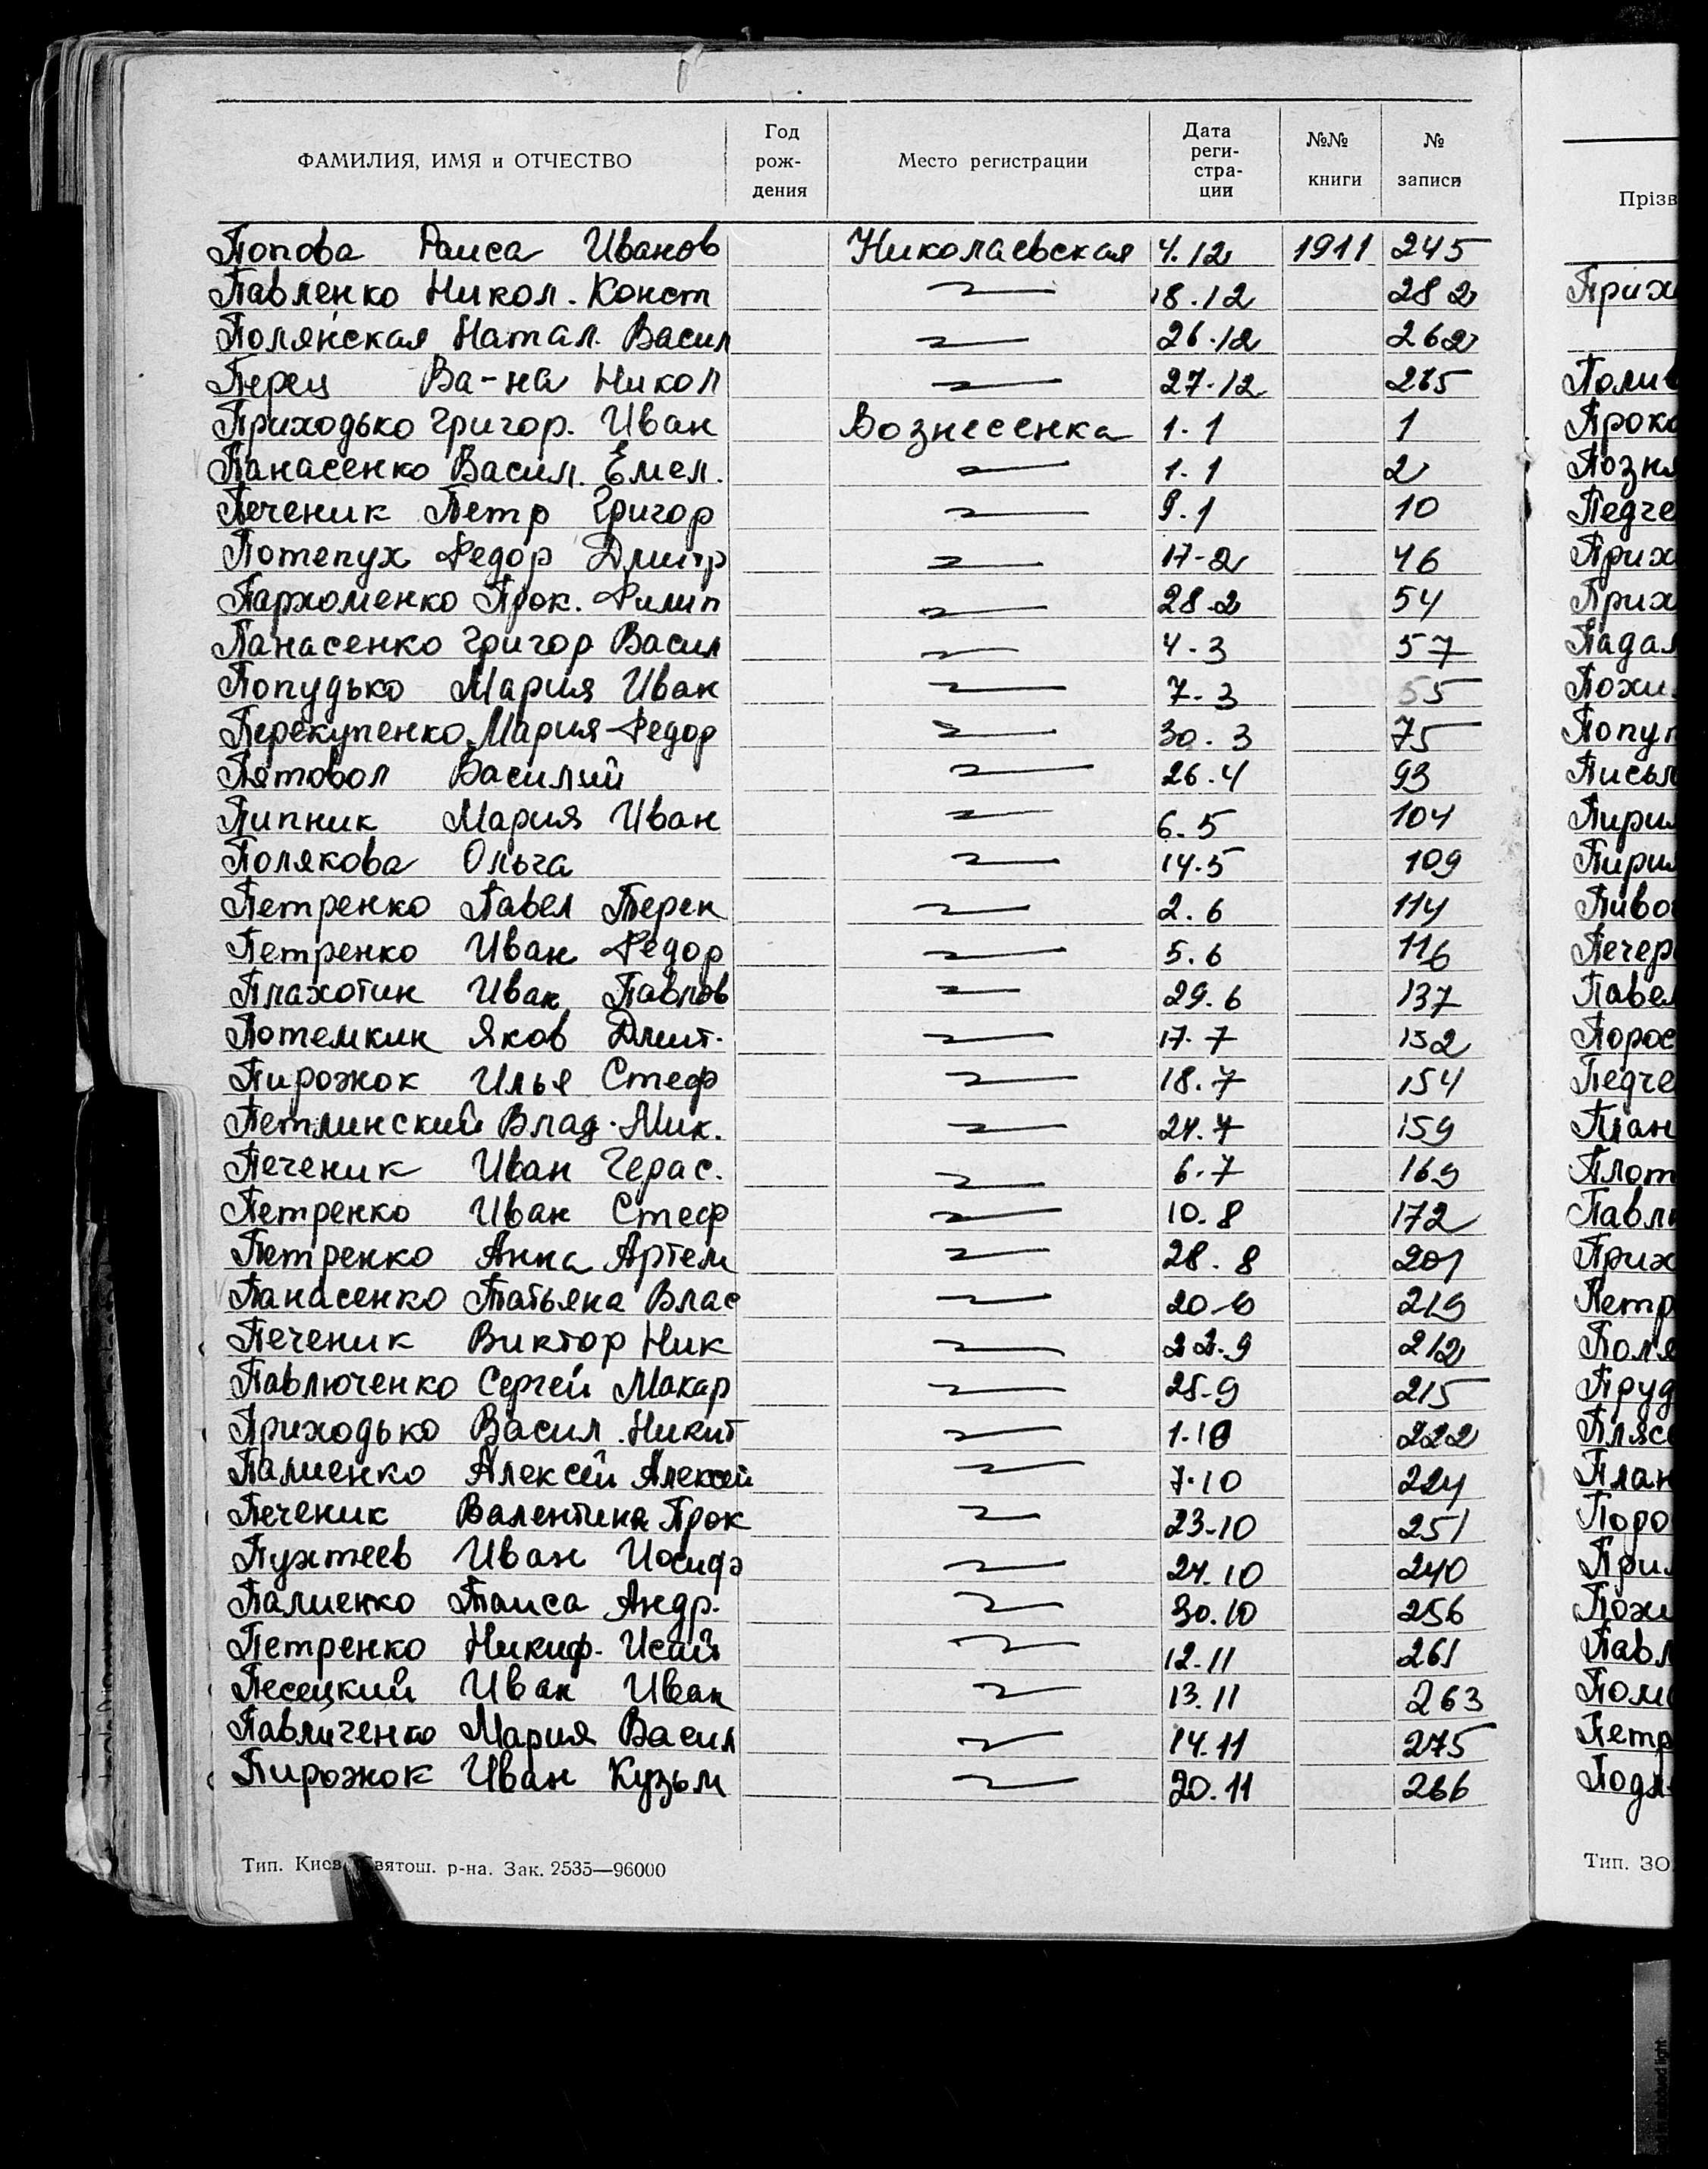 ФАМИЛИЯ, ИМЯ и ОТЧЕСТВО Год рождения Место регистрации Дата регистрации №№ книги № записи
Попова Раиса Иванов Николаевская 4.12 1911 245
Павленко Никол. Конст 18.12 282
Полянская Натал. Васил 26.12 262
Перец Ва-на Никол 27.12 265
Приходько Григор. Иван Вознесенка 1.1 1
Панасенко Васил. Емел. 1.1 2
Печеник Петр Григор 9.1 10
Потепух Федор Дмитр 17-2 46
Пархоменко Прок. Филип 28.2 54
Панасенко Григор Васил 4-3 57
Попудько Мария Иван 7-3 55
Перекупенко Мария Федор 30.3 75
Пятовол Василий 26.4 93
Пипник Мария Иван 6.5 104
Полякова Ольга 14.5 109
Петренко Павел Терен 2.6 114
Петренко Иван Федор 5.6 116
Плахотин Иван Павлов 29.6 137
Потемкин Яков Дмит. 17.7 152
Пирожок Илья Стеф 18.7 154
Петлинский Влад. Мик. 24.7 159
Печеник Иван Герас. 6.7 169
Петренко Иван Стеф 10.8 172
Петренко Анна Артем 28.8 201
Панасенко Татьяна Влас 219
Печеник Виктор Ник 22.9 212
Павлюченко Сергей Макар 25-9 215
Приходько Васил. Никит 1.10 222
Палиенко Алексей Алексей 7.10 224
Печеник Валентина Прок 23-10 251
Пухтеев Иван Иосифо 24.10 240
Палиенко Таиса Андр. 30.10 256
Петренко Никиф. Исай 12.11 261
Песецкий Иван Иван 13.11 263
Павличенко Мария Васил 14.11 275
Пирожок Иван Кузьм 20.11 266
Тип. Киев. Святош. р-на. Зак. 2535—96000
Прізв
Прих
Полив
Проко
Позня
Педче
Прих
Прих
Падал
Похи
Попуп
Письм
Пири
Пири
Пиво
Печер
Павел
Порос
Педче
План
Плот
Павл
Прих
Петр
Поля
Пруд
Пляс
План
Поро
При
Пожи
Павл
Пом
Петр
Подл
Тип. ЗО